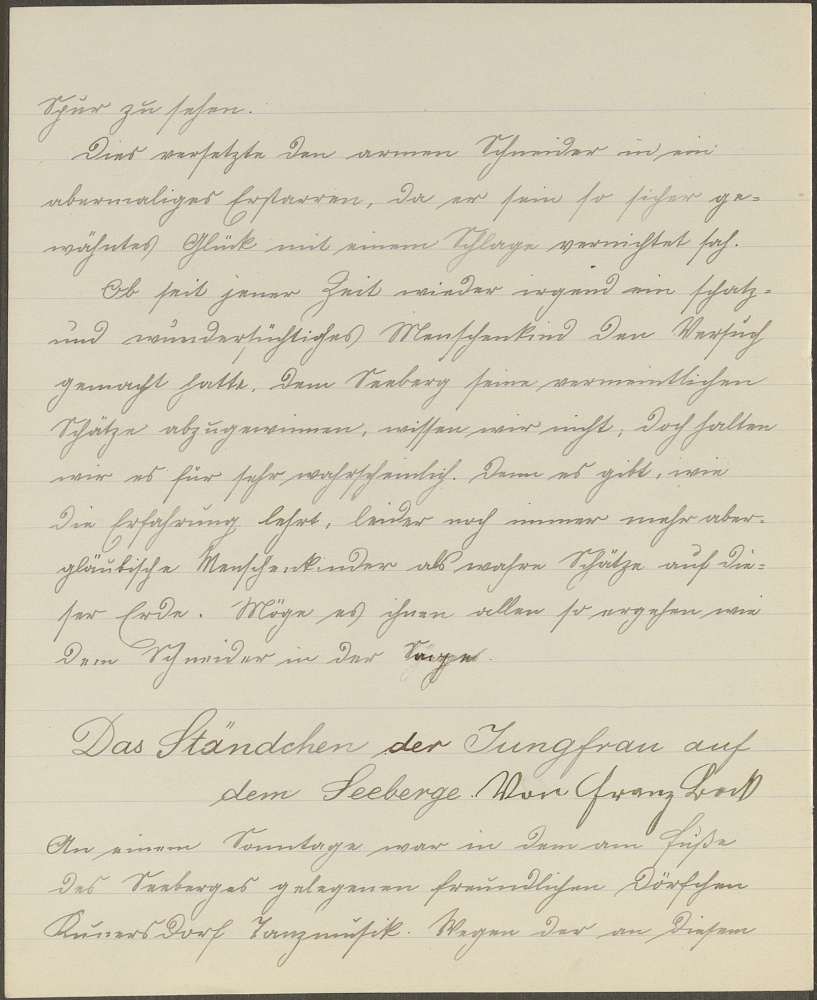 Spur zu sehen.
Dies versetzte den armen Schneider in ein
abermaliges Erstarren, da er sein so sicher ge=
wähntes Glück mit einem Schlage vernichtet sah.
Ob seit jener Zeit wieder irgend ein schatz=
und wundersüchtiges Menschenkind den Versuch
gemacht hatte, dem Seeberg seine vermeintlichen
Schätze abzugewinnen, wissen wir nicht; doch halten
wir es für sehr wahrscheinlich. Denn es gibt, wie
die Erfahrung lehrt, leider noch immer mehr aber=
gläubische Menschenkinder als wahre Schätze auf die=
ser Erde. Möge es ihnen allen so ergehen wie
dem Schneider in der Sage.
Das Ständchen der Jungfrau auf
dem Seeberge. Von Franz
An einem Sonntage war in dem am Fuße
des Seeberges gelegenen freundlichen Dörfchen
Kunersdorf Tanzmusik. Wegen der an diesem